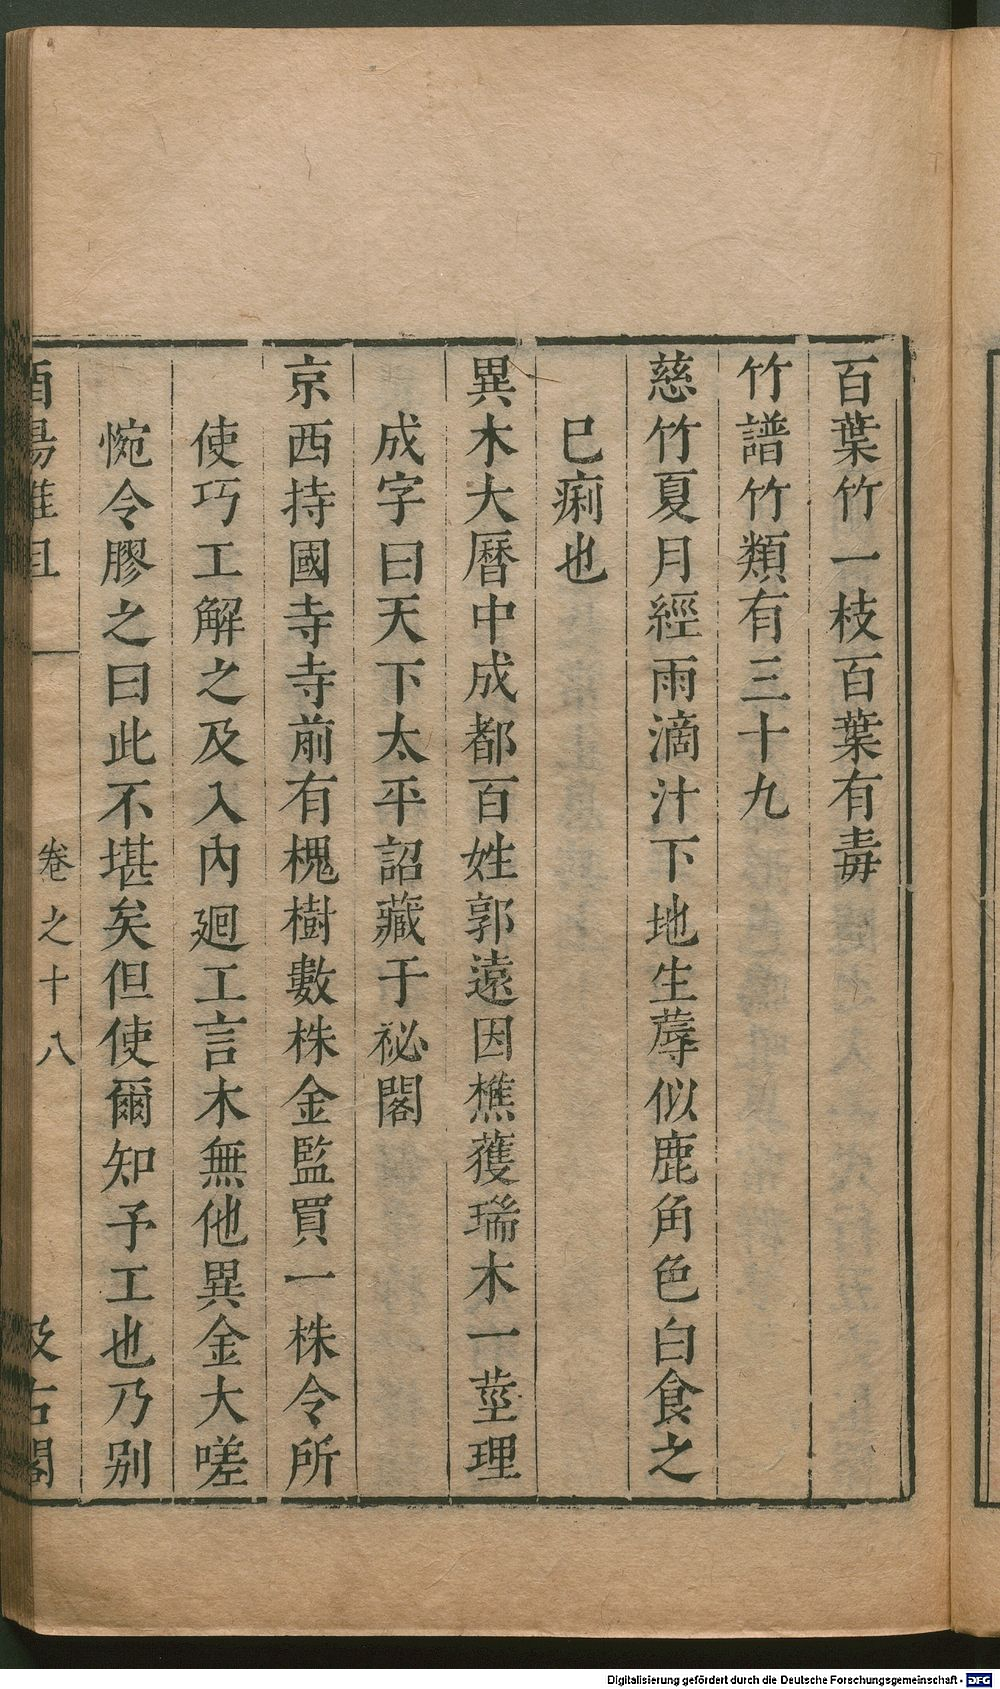 百葉竹一枝百葉有毒
竹譜竹類有三十九
慈竹夏月經雨滴汁下地生蓐似鹿角色白食之
巳痢也
異木大曆中成都百姓郭遠因樵獲瑞木一莖理
成字曰天下太平詔藏于祕閣
京西持國寺寺前有槐樹數株金監買一株令所
使巧工解之及入內廻工言木無他異金大嗟
惋令膠之曰此不堪矣但使爾知予工也乃別
酉陽雜俎 卷之十八 汲古閣
Digitalisierung gefördert durch die Deutsche Forschungsgemeinschaft - DFG